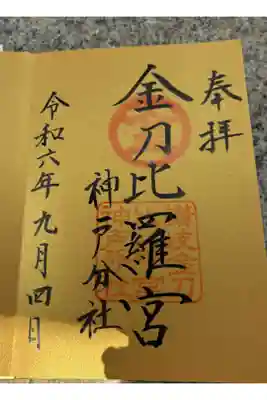 奉拝
金刀比羅宮
神戸分社
令和六年九月四日